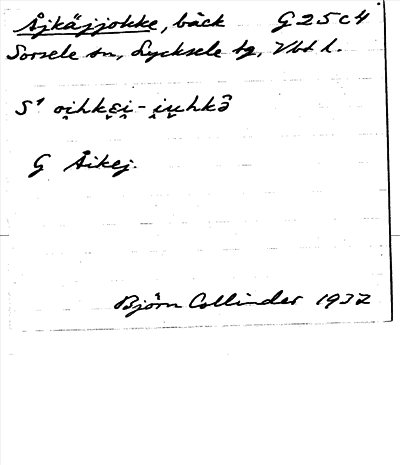 Åjkäjjokke, bäck G 25 c 4
Sorsele sn, Lycksele tg, Vbt l.
S¹ o̯i̯hkɛ̯i̯-i̯u̯hkə̂
G Åikej.
Björn Collinder 1932